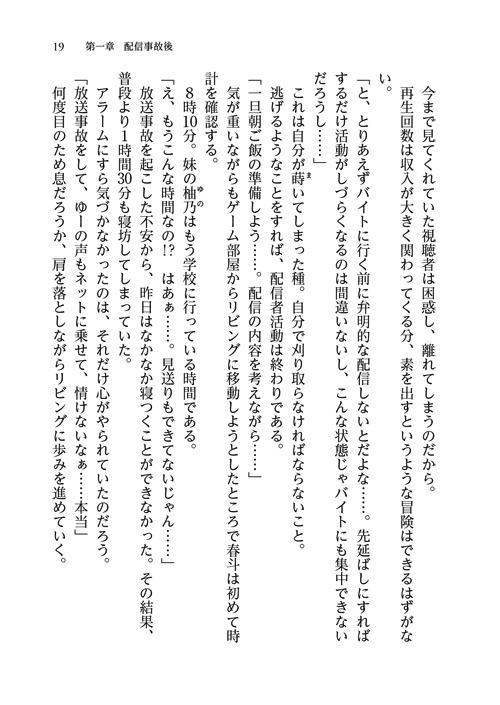 19　第一章　配信事故後
今まで見てくれていた視聴者は困惑し、離れてしまうのだから。
再生回数は収入が大きく関わってくる分、素を出すというような冒険はできるはずがな
い。
「と、とりあえずバイトに行く前に弁明的な配信しないとだよな……。先延ばしにすれば
するだけ活動がしづらくなるのは間違いないし、こんな状態じゃバイトにも集中できない
だろうし……」
これは自分が蒔いてしまった種。自分で刈り取らなければならないこと。
ま
逃げるようなことをすれば、配信者活動は終わりである。
「一旦朝ご飯の準備しよう……。配信の内容を考えながら……」
気が重いながらもゲーム部屋からリビングに移動しようとしたところで春斗は初めて時
計を確認する。
8時10分。妹の柚乃はもう学校に行っている時間である。
ゆの
「え、もうこんな時間なの!?　はあぁ……。見送りもできてないじゃん……」
放送事故を起こした不安から、昨日はなかなか寝つくことができなかった。その結果、
普段より1時間30分も寝坊してしまっていた。
アラームにすら気づかなかったのは、それだけ心がやられていたのだろう。
「放送事故をして、ゆーの声もネットに乗せて、情けないなぁ……本当」
何度目のため息だろうか、肩を落としながらリビングに歩みを進めていく。